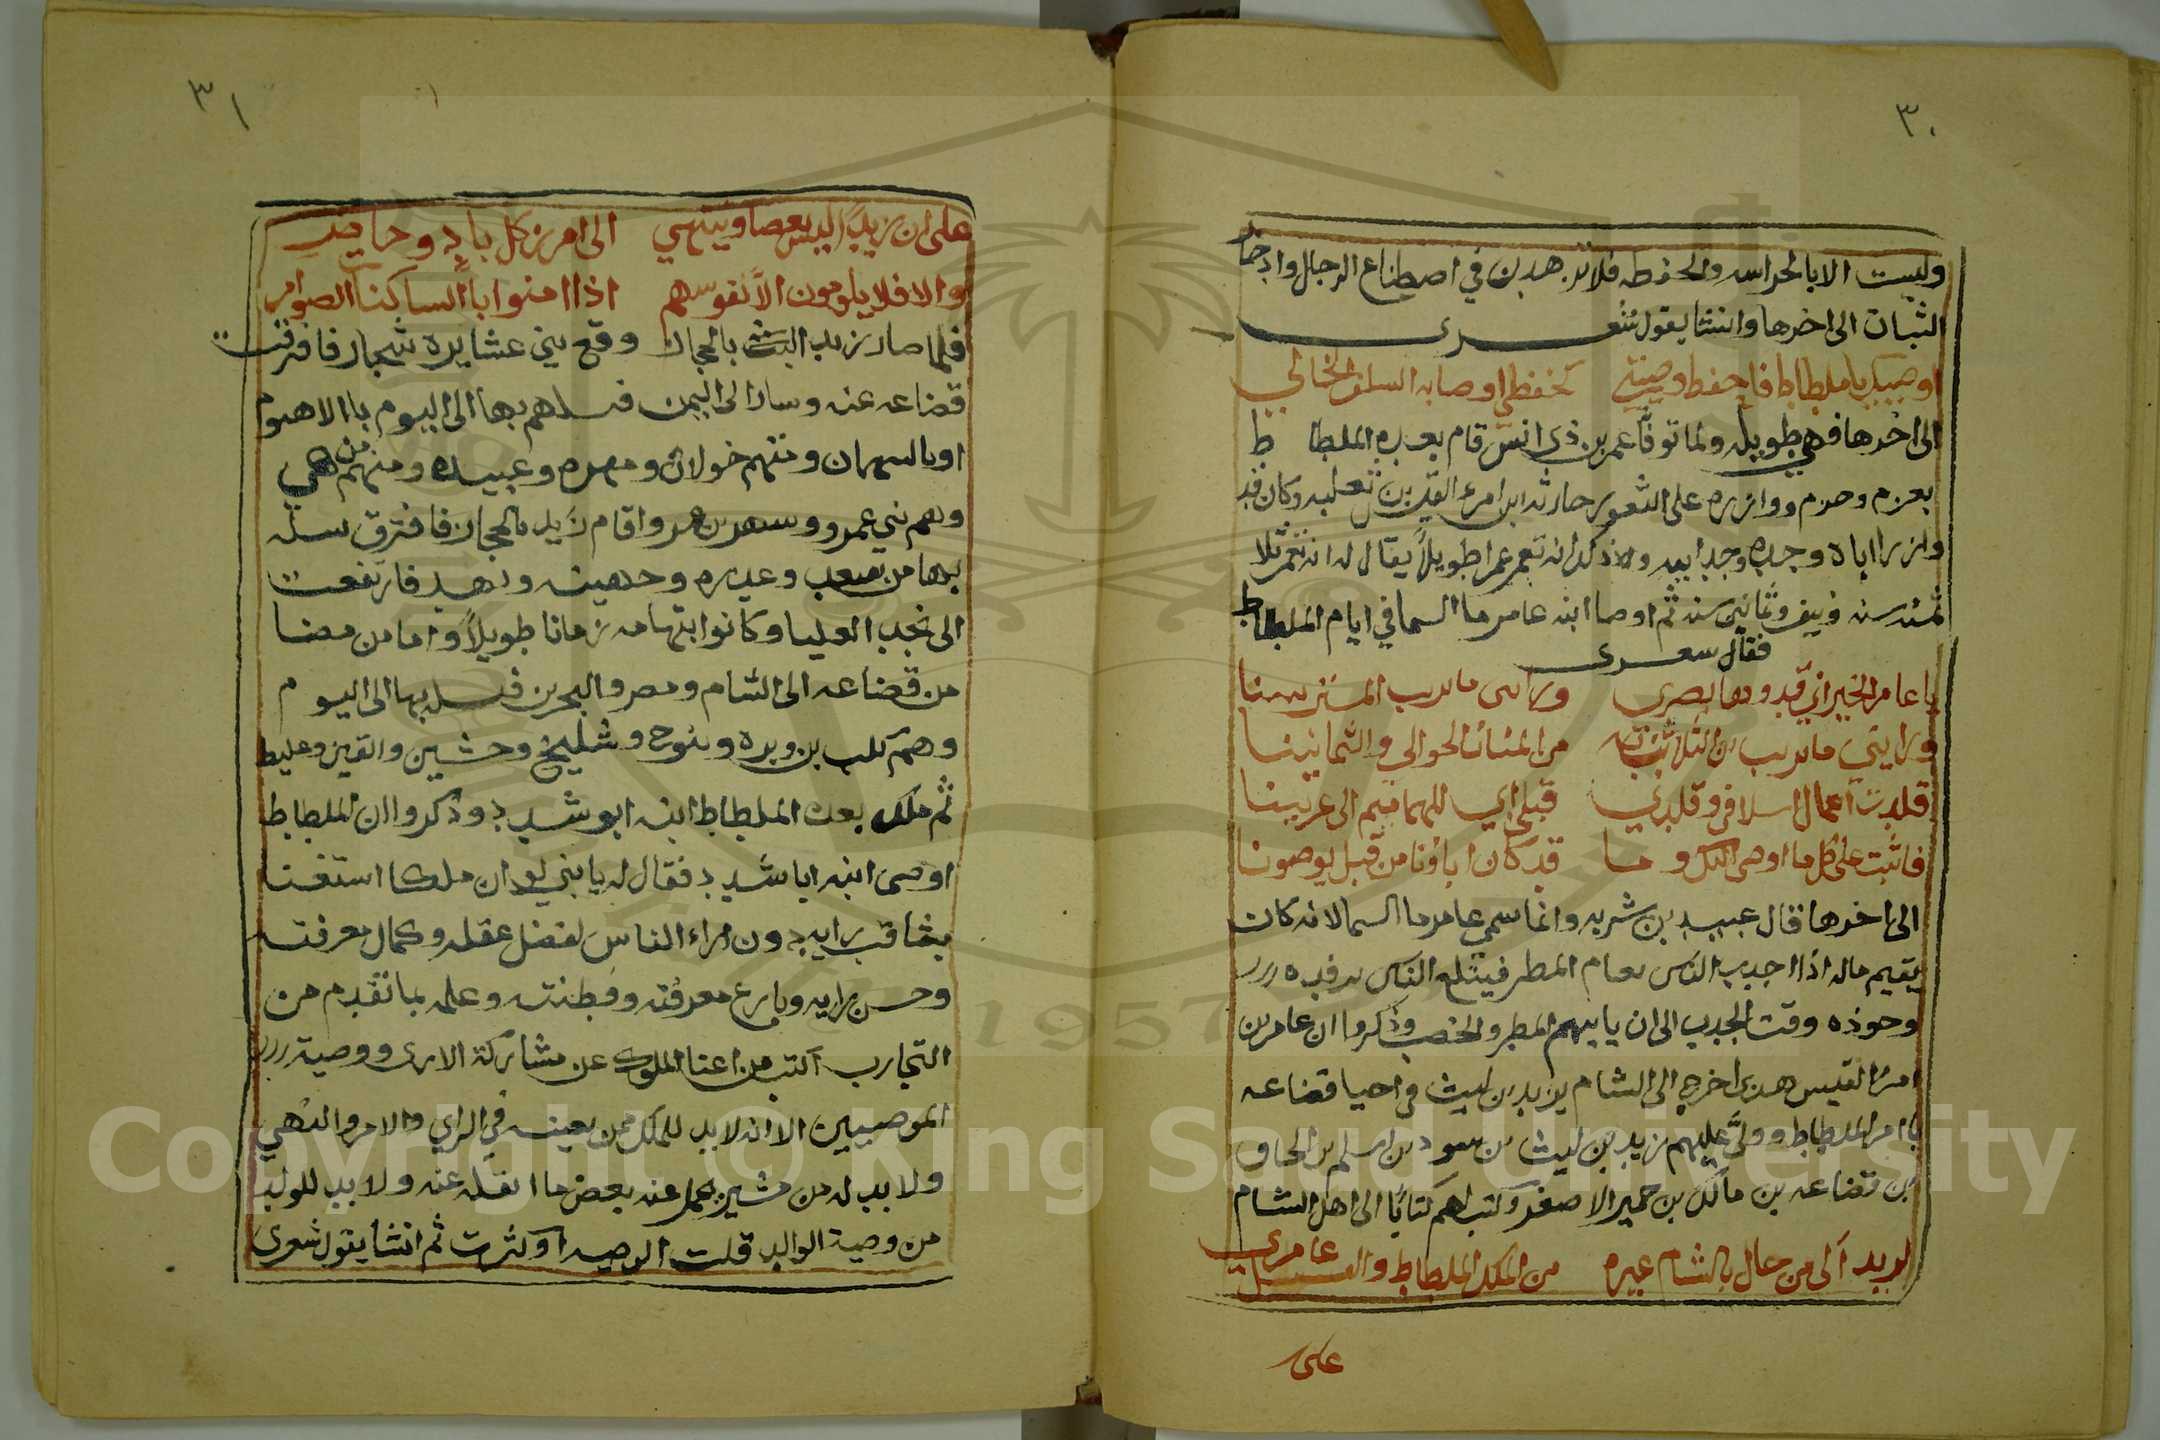 ٣٠
وليست الا بالحراسه والحفطه فلا تزهدن في اصطناع الرجال وادخار
الثبات الى اخرها وانشا يقول شعرى
اوصيك يا ملطاط فاحفظ وصيتي كحفظي اوصايه السلف الخالي
الى اخرها فهي طويله ولما توفا عمر بن ذي انس قام بعده الملطاط
بعزم وحزم ووازره على الثغور حارثه ابن امرء القيس بن ثعلبه وكان قد
وازر اباه وجده وجد ابيه وذكر انه تعمر عمرا طويلاً يقال له انه تعمر ثلا
ثمئه سنه ونيف وثمانين سنه ثم اوصا ابنه عامر ما السما في ايام الملطاط
فقال شعرى
يا عامر الخير اني قد وها بصرى وراسى ما
ورايتي ما من الثلاث من المئات الحوالي والثمانينا
قلدت اعمال اسلافى وقلدني قبلي ابي للهمام
فاثبت على كل ما اوصى اليك وما قد كان اباؤنا من قبل يوصونا
الى اخرها قال عبيد بن شريه وانما سمي عامر ما السما لانه كان
يقيم ماله اذا اجدب الناس مقام المطر الناس برفده
وجوده وقت الجدب الى ان ياتيهم المطر والخصب وذكروا ان عامر بن
امرء القيس هذا اخرج الى الشام يزيد بن ليث فى احيا قضاعه
بامر الملطاط وولى عليهم زيد بن ليث بن سود بن اسلم بن الحاف
بن قضاعه بن مالك بن حمير الاصغر وكتب لهم كتابًا الى اهل الشام
لزيد الى من حال بالشام عيره من الملك الملطاط والقيل عامري
على
٣١
على ان زيدًا ليس يعصا وينتهي الى امر زيد كل باد وحاضر
والا فلا يلومون الا نفوسهم اذا امنوا
فلما صار زيد الى بالحجاز وقع بني عشايره شجار فافترقت
قضاعه عنه وسار الى اليمن فنسلهم بها الى اليوم بالاهنوم
او بالسهمان ومنهم خولان ومهره وعبيده ومنهم من هي
وهم بني عمرو وسعد بن عمر واقام زيد بالحجاز فافترق نسله
بها من صعب وعذره وجهينه ونهد فارتفعت
الى نجد العليا وكانوا بتهامه زمانا طويلاً واما من مضا
من قضاعه الى الشام ومصر والبحرين فنسله بها الى اليوم
وهم كلب بن وبره وتنوح وشليخ وخشين والقين وعليط
ثم ملك بعده الملطاط ابنه ابو شدد وذكروا ان الملطاط
اوصى ابنه ابا شدد فقال له يا بني لو ان ملكا استغنا
بثاقب رايه دون اراء الناس لفضل عقله وكمال معرفته
وحسن رايه وبارع معرفته وفطنته وعلمه بما تقدم من
التجارب لكنت من اغنا الملوك عن مشاركة الارى ووصية
الموصيين الا انه لا بد للملك ممن يعينه في الراي والامر والنهي
ولا بد له من مشير يحمل عنه بعض ما اثقله عنه ولا بد للولد
من وصية الوالد قلت الوصيه او كثرت ثم انشا يقول شعرى
Copyright © King Saud University
1957